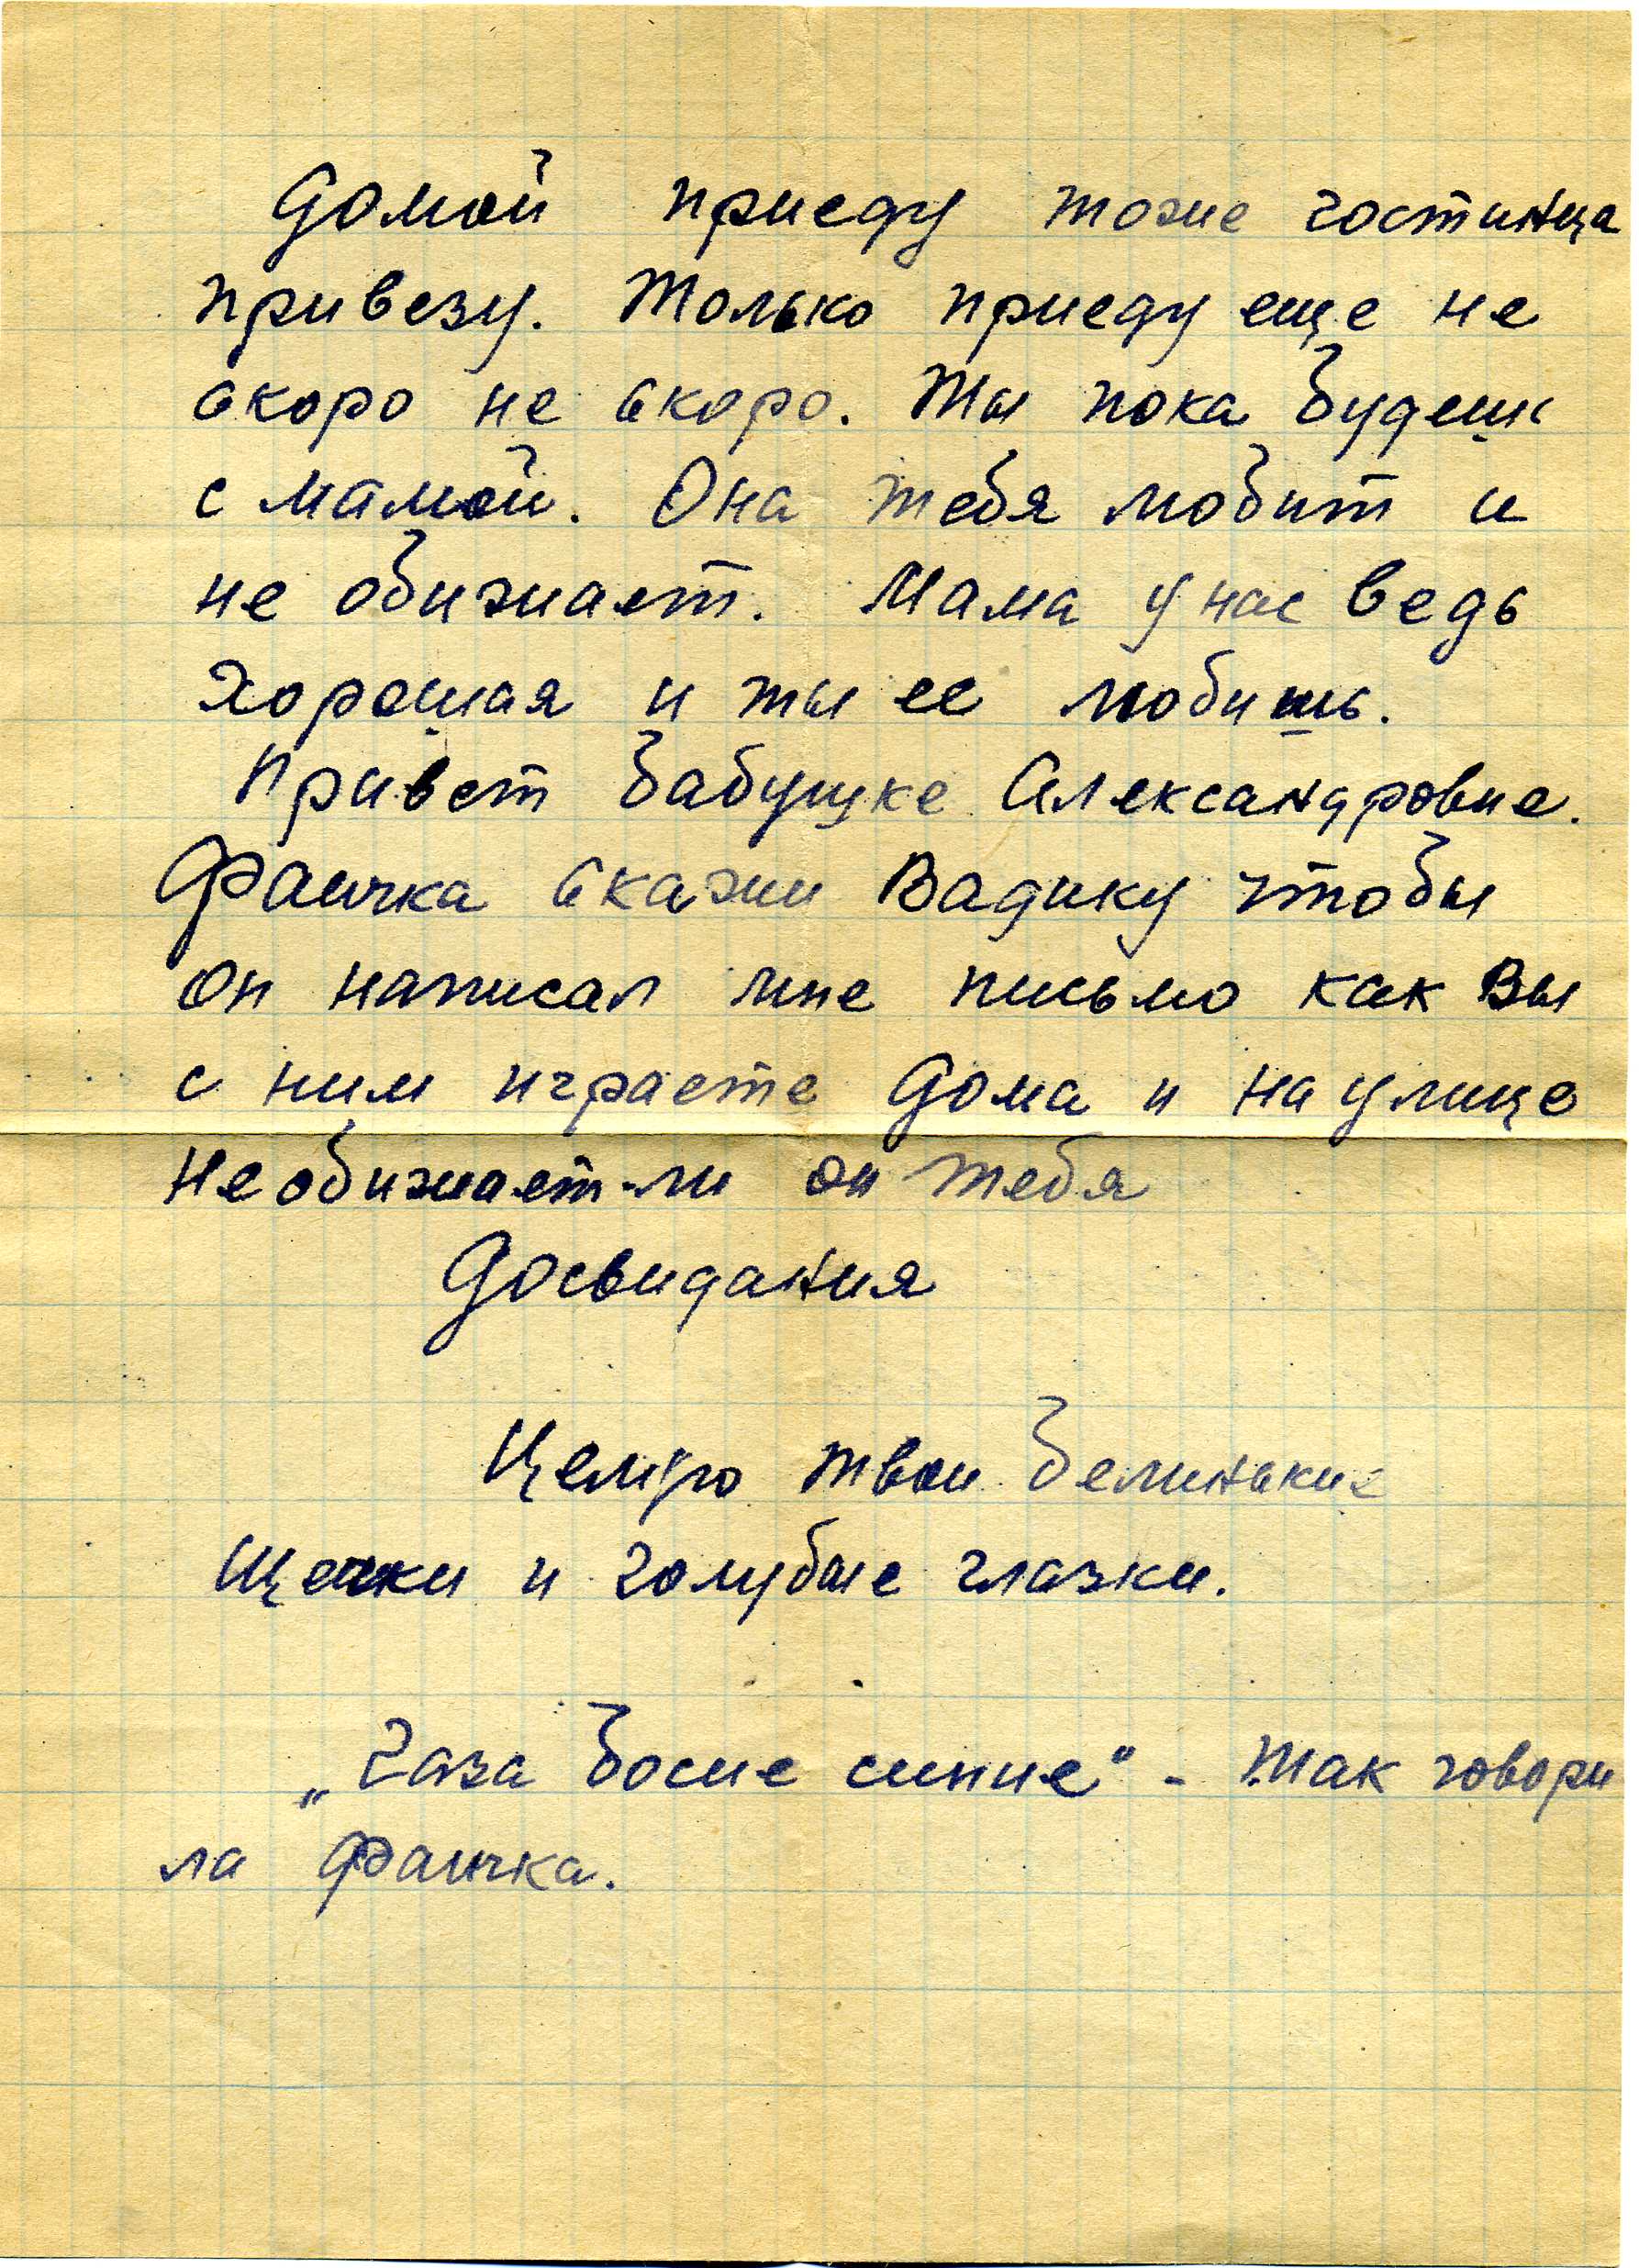 Домой приеду тоже гостинца
привезу. Только приеду еще не
скоро не скоро. Ты пока будешь
с мамой. Она тебя любит и
не обижает. Мама у нас ведь
хорошая и ты ее любишь.
Привет бабушке Александровне.
Фаичка скажи Вадику чтобы
он написал мне письмо как Вы
с ним играете дома и на улице
Необижает-ли он тебя
Досвидания
Целую твои белиньких
щечки и голубые глазки.
„Газа босие синие" - так говори
ла Фаичка.